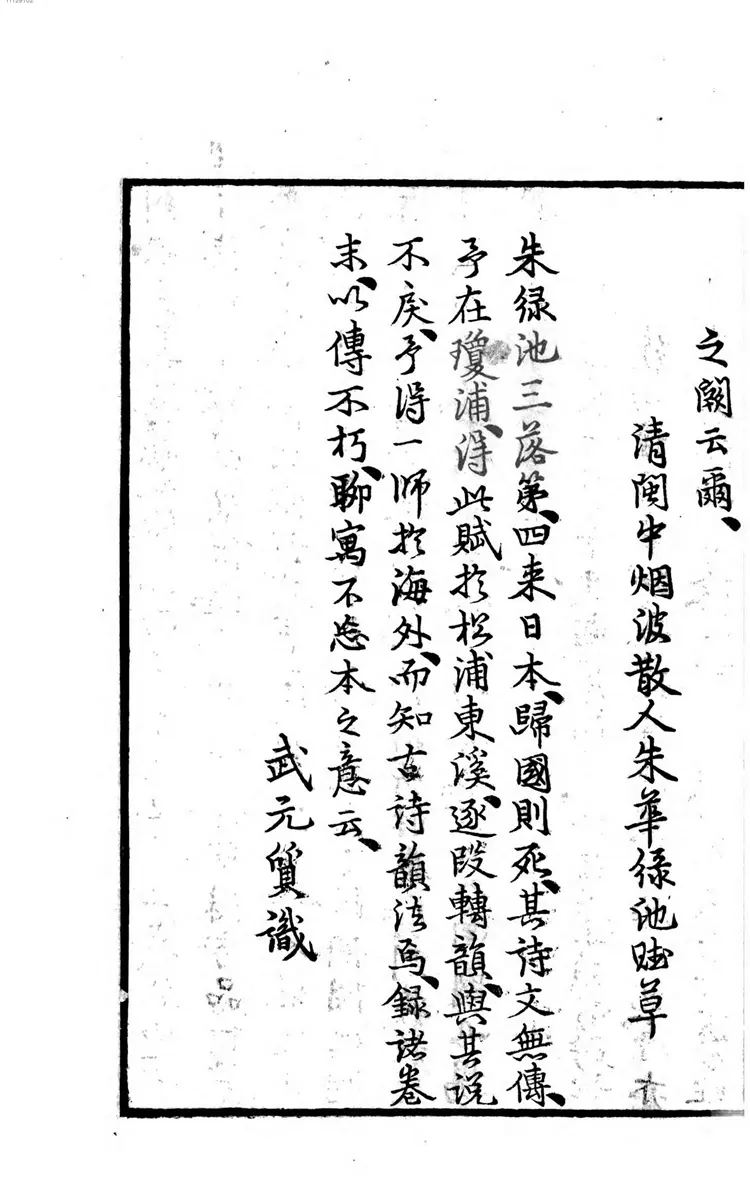 之闕云爾、
清閩中烟波散人朱華緑池賦草
朱緑池三落第、四来日本、歸國則死、其詩文無傳、
予在瓊浦、得此賦於松浦東溪、逐段轉韻、與其説
不戾、予得一師於海外、而知古詩韻法焉、録諸卷
末、以傳不朽、聊寓不忘本之意云、
武元質識